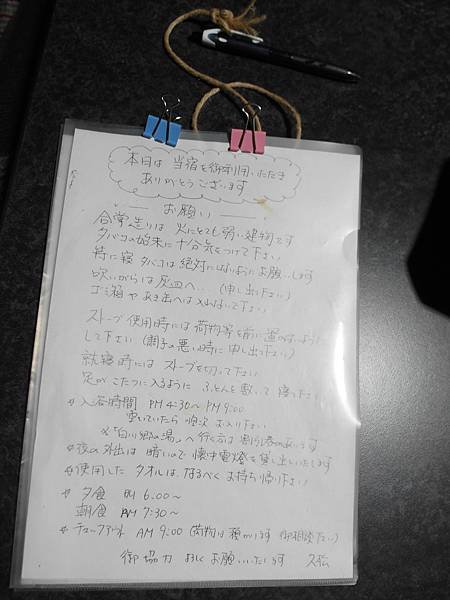 本日は 当宿を御利用いただき
ありがとうございます
お願い
合掌造りは 火にとても弱い建物です
タバコの始末に十分気をつけて下さい
特に寝タバコは絶対にしないようにお願いします
吸いがらは灰皿へ (申し出て下さい)
ゴミ箱やあき缶へは入れないで下さい
ストーブ使用時には荷物等を前に置かないように
して下さい (調子の悪い時に申し出て下さい)
就寝時には ストーブを切って下さい
足がこたつに入るように ふとんを敷いて 寝て下さい
☆ 入浴時間 PM4:30~PM9:00
空いていたら 順次 お入り下さい
※「白川郷の湯」へ行く方は 割引券があります
☆夜の外出は 暗いので 懐中電燈を貸し出しいたします
☆使用した タオルは なるべく お持ち帰り下さい
☆ 夕食 PM 6.00~
朝食 AM 7:30~
☆チェックアウト AM 9:00 (荷物は預かります 御相談下さい)
御協力 よろしく お願いいたします